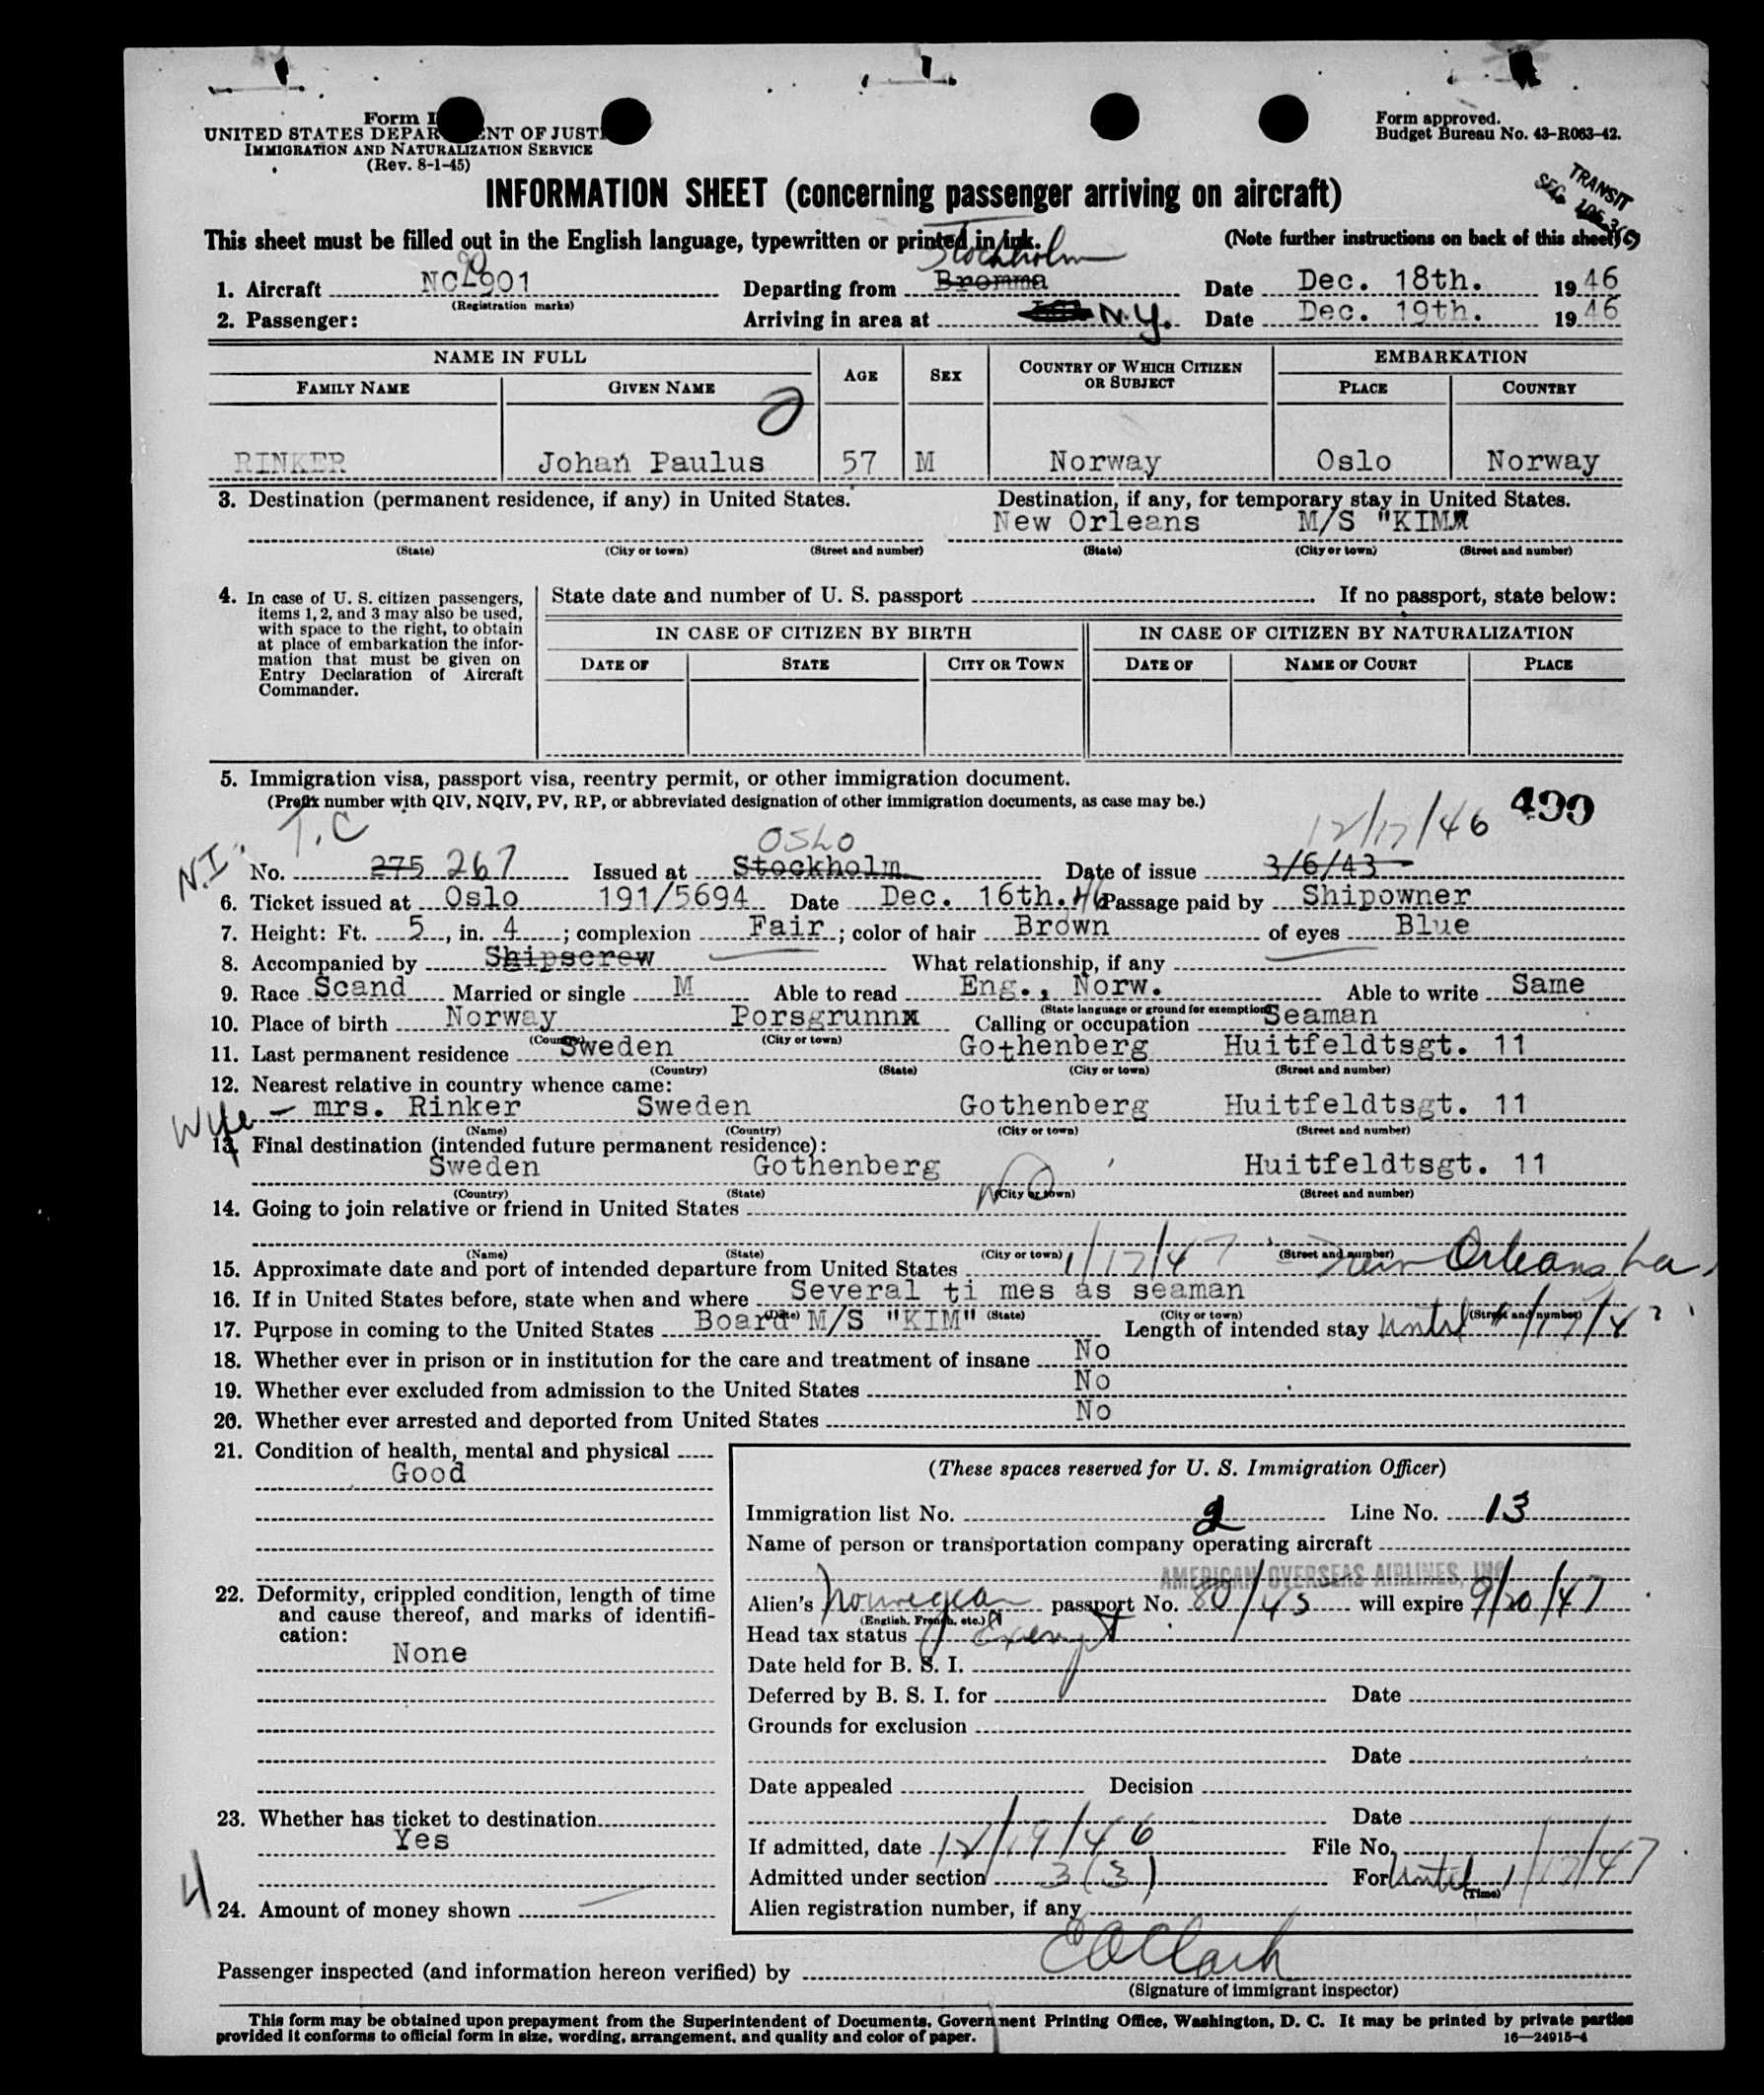 Form I
UNITED STATES DEPAR ENT OF JUST
IMMIGRATION AND NATURALIZATION SERVICE
(Rev. 8-1-45)
Form approved.
Budget Bureau No. 43-R063-42.
TRANSIT
SEC.
INFORMATION SHEET (concerning passenger arriving on aircraft)
This sheet must be filled out in the English language, typewritten or printed in ink. (Note further instructions on back of this sheet)
Stockholm
90
1. Aircraft NC 901 Departing from Bromma Date Dec. 18th. 1946
(Registration marks)
2. Passenger: Arriving in area at N.Y. Date Dec. 19th. 1946
NAME IN FULL AGE SEX COUNTRY OF WHICH CITIZEN OR SUBJECT EMBARKATION
FAMILY NAME GIVEN NAME PLACE COUNTRY
RINKER Johan Paulus 57 M Norway Oslo Norway
3. Destination (permanent residence, if any) in United States. Destination, if any, for temporary stay in United States.
New Orleans M/S "KIM"
(State) (City or town) (Street and number) (State) (City or town) (Street and number)
4. In case of U. S. citizen passengers, items 1, 2, and 3 may also be used, with space to the right, to obtain at place of embarkation the infor-mation that must be given on Entry Declaration of Aircraft Commander.
State date and number of U. S. passport If no passport, state below:
IN CASE OF CITIZEN BY BIRTH IN CASE OF CITIZEN BY NATURALIZATION
DATE OF STATE CITY OR TOWN DATE OF NAME OF COURT PLACE
5. Immigration visa, passport visa, reentry permit, or other immigration document.
(Prefix number with QIV, NQIV, PV, RP, or abbreviated designation of other immigration documents, as case may be.)
499
N.I. T.C OSLO 12/17/46
No. 275 267 Issued at Stockholm Date of issue 3/6/43
6. Ticket issued at Oslo 191/5694 Date Dec. 16th. 46 Passage paid by Shipowner
7. Height: Ft. 5, in. 4; complexion Fair; color of hair Brown of eyes Blue
8. Accompanied by Shipscrew What relationship, if any
9. Race Scand Married or single M Able to read Eng., Norw. Able to write Same
(State language or ground for exemption)
10. Place of birth Norway Porsgrunnx Calling or occupation Seaman
(Country) (City or town)
11. Last permanent residence Sweden Gothenberg Huitfeldtsgt. 11
(Country) (State) (City or town) (Street and number)
12. Nearest relative in country whence came:
Wife - mrs. Rinker Sweden Gothenberg Huitfeldtsgt. 11
(Name) (Country) (City or town) (Street and number)
13. Final destination (intended future permanent residence):
Sweden Gothenberg Huitfeldtsgt. 11
(Country) (State) (City or town) (Street and number)
14. Going to join relative or friend in United States No
(Name) (State) (City or town) (Street and number)
15. Approximate date and port of intended departure from United States 1/17/47 - New Orleans, La.
16. If in United States before, state when and where Several ti mes as seaman
(Date) (State) (City or town) (Street and number)
17. Purpose in coming to the United States Board M/S "KIM" Length of intended stay Until 1/17/47
18. Whether ever in prison or in institution for the care and treatment of insane No
19. Whether ever excluded from admission to the United States No
20. Whether ever arrested and deported from United States No
21. Condition of health, mental and physical
Good
22. Deformity, crippled condition, length of time and cause thereof, and marks of identifi-cation:
None
23. Whether has ticket to destination
Yes
4
24. Amount of money shown
(These spaces reserved for U. S. Immigration Officer)
Immigration list No. 2 Line No. 13
Name of person or transportation company operating aircraft
AMERICAN OVERSEAS AIRLINES, INC
Alien's Norwegian passport No. 80/45 will expire 9/20/47
(English, French, etc.)
Head tax status Exempt
Date held for B. S. I.
Deferred by B. S. I. for Date
Grounds for exclusion
Date
Date appealed Decision
Date
If admitted, date 12/19/46 File No.
Admitted under section 3(3) For Until 1/17/47
(Time)
Alien registration number, if any
Passenger inspected (and information hereon verified) by E O Clark
(Signature of immigrant inspector)
This form may be obtained upon prepayment from the Superintendent of Documents, Government Printing Office, Washington, D. C. It may be printed by private parties
provided it conforms to official form in size, wording, arrangement, and quality and color of paper. 16—24915-4